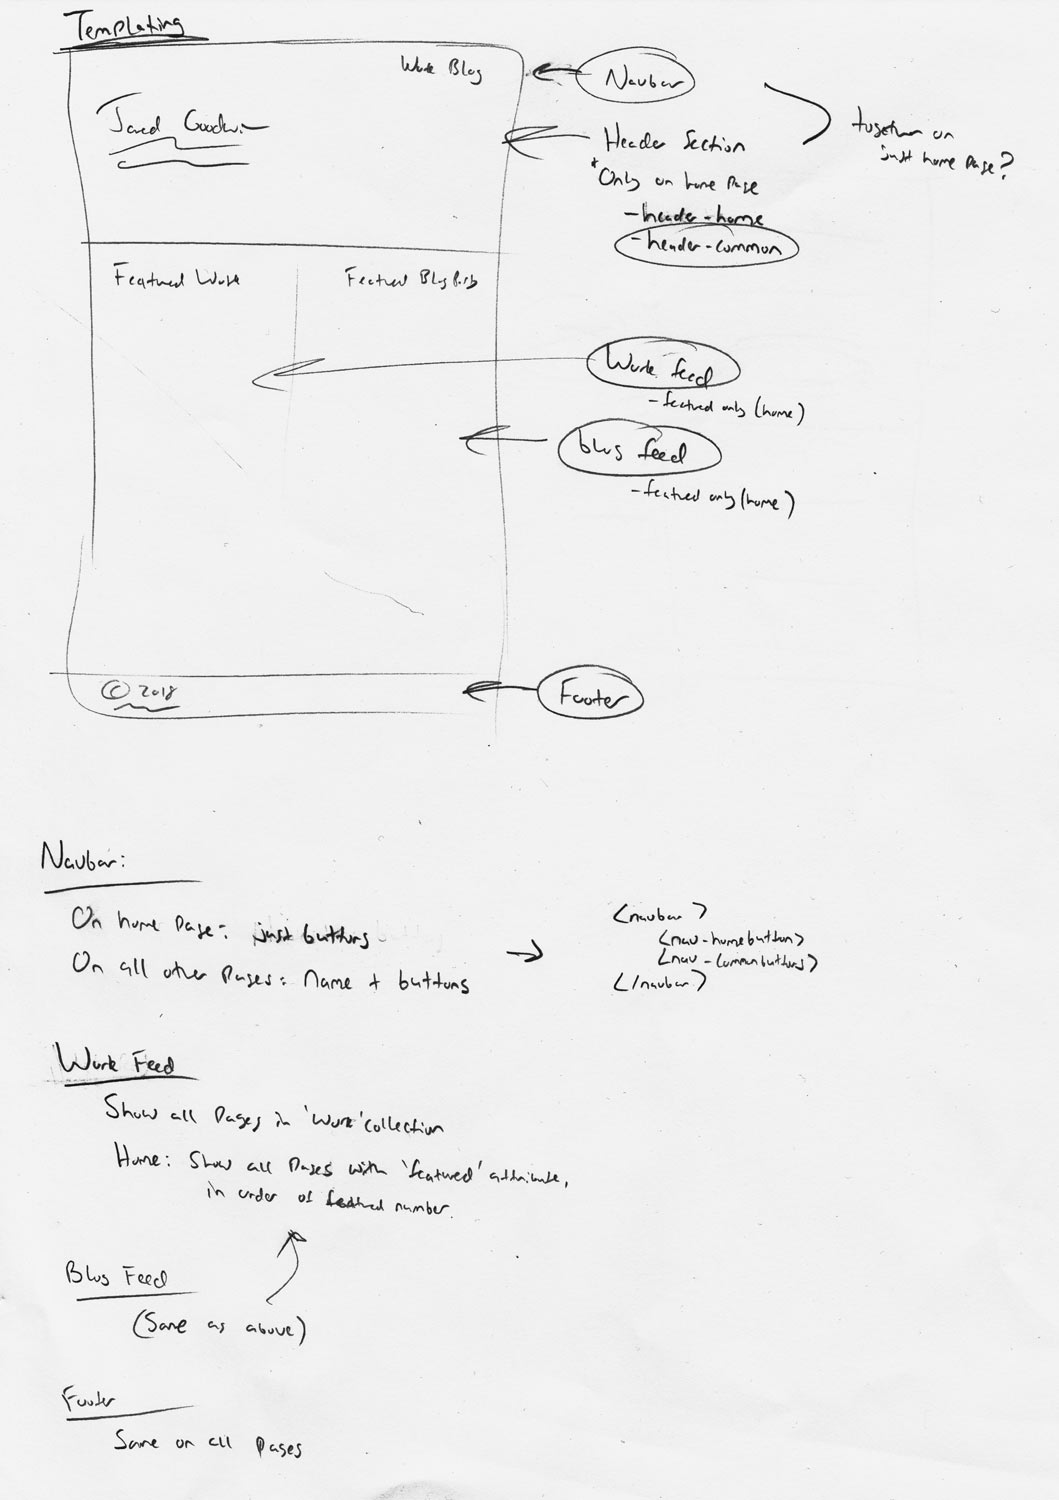 Templating
Work Blog
Navbar
Jared Goodwin
Header Section
together on
just home page?
*Only on home page
-header-home
-header-common
Featured Work
Featured Blog Posts
Work feed
-featured only (home)
blog feed
-featured only (home)
© 2018
Footer
Navbar:
On home page: just buttons
On all other pages: Name + buttons
<navbar>
<nav-homebutton>
<nav-commonbuttons>
</navbar>
Work Feed
Show all pages in 'work' collection
Home: Show all pages with 'featured' attribute,
in order of featured number.
Blog Feed
(Same as above)
Footer
Same on all pages